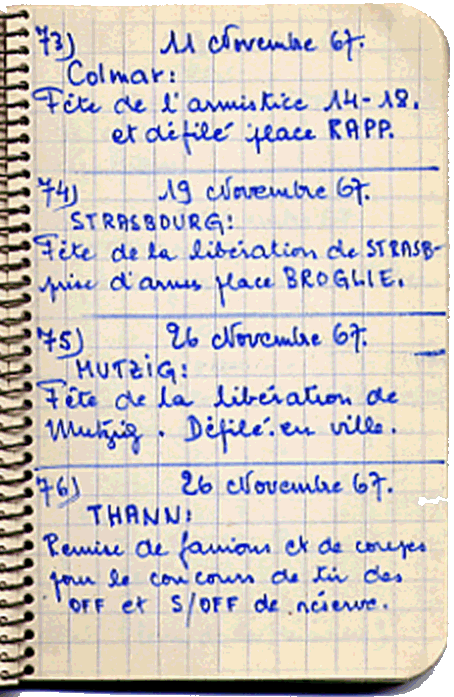 73) 11 Novembre 67.
Colmar:
Fête de l'armistice 14-18.
et défilé place RAPP.
74) 19 Novembre 67.
STRASBOURG:
Fête de la libération de STRASB-
prise d'armes place BROGLIE.
75) 26 Novembre 67.
MUTZIG:
Fête de la libération de
Mutzig. Défilé en ville.
76) 26 Novembre 67.
THANN:
Remise de fanions et de coupes
pour le concours de tir des
OFF et S/OFF de réserve.